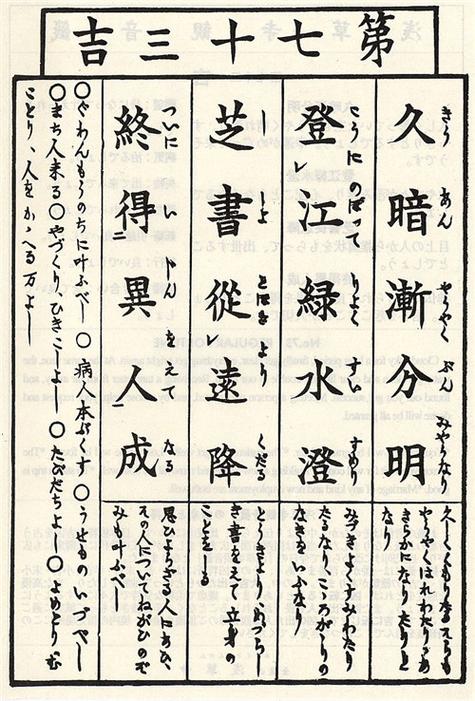 第七十三吉
久暗漸分明
きう あん やうやく ぶん みやうなり
久しくくもりたるそらも
やうやくはれわたりあ
きらかになりたりと
なり
登江緑水澄
のぼつて りよく すい すめり
みづきよくすみわたり
なきをいふなり
芝書從遠降
しよ とほき より くだる
とうきより、めづらし
き書をえて立身の
ことをしる
終得異人成
ついに い じん をえて なる
思ひよらざる人にあひ
その人についてねがひのぞ
みも叶ふべし
〇ぐわんもうのちに叶ふべし〇病人本ぷくす〇うせものいづべし
〇まち人来る〇やづくり、ひきこしよし〇たびだちよし〇よめとりむ
ことり、人をかゝへる万よし